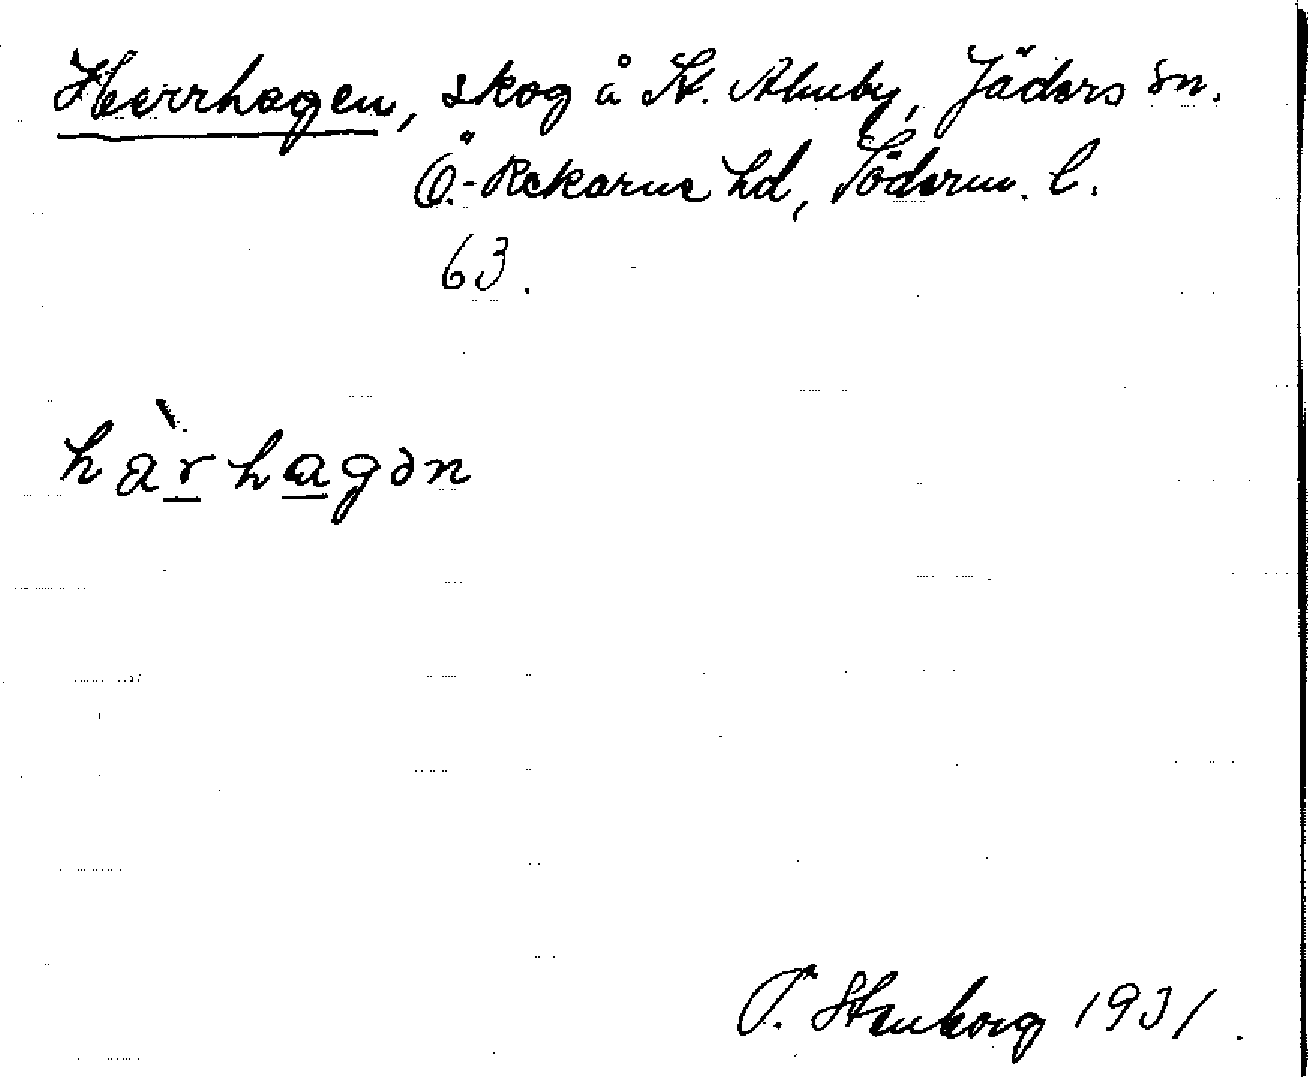 Herrhagen, skog å St. Åkuby, Jäders sn.
Ö.-Rekarne hd, Söderm. l.
63.
hàrhagən
P. Stenborg 1931.